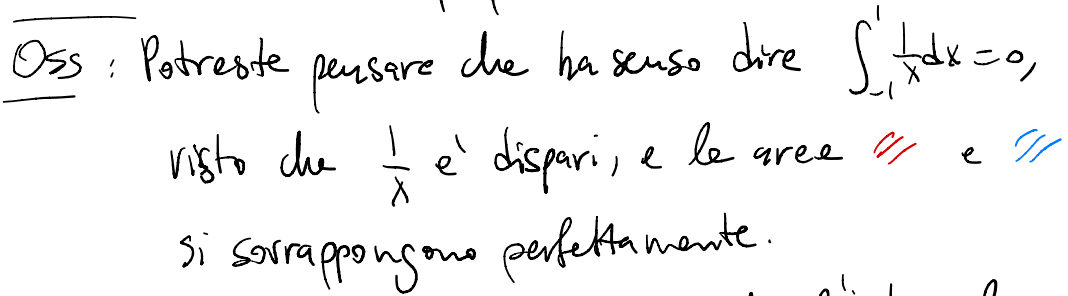 Oss: Potreste pensare che ha senso dire ∫_{-1}^{1} 1/x dx = 0,
visto che 1/x e' dispari, e le aree e
si sovrappongono perfettamente.